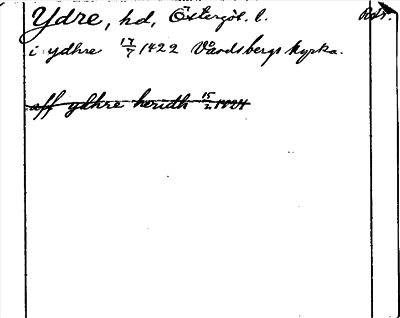 Ydre, hd, Östergöt. l.
i ydhre 17/7 1422 Vårdsbergs kyrka.
aff ydhre heridh 15/2 1424